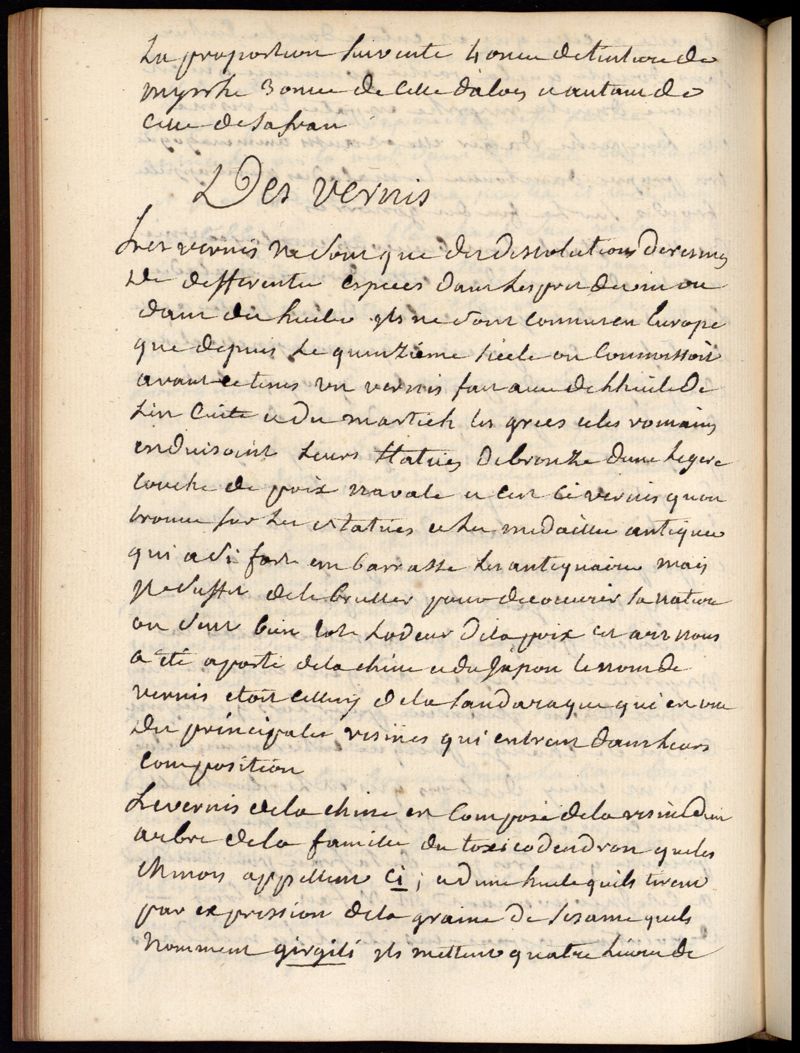 La proportion suivente 4 once de tinture de
myrrhe 3 once de celle daloes e autant de
celle de safran
Des vernis
Les vernis ne sont que des dissolutions de resines
de differentes especes dans lesprit de vin ou
dans des huiles yls ne sont connus en Europe
que depuis le quinzieme siecle on connoissoit
avant ce tems un vernis fait avec de lhuile de
lin cuite e du mastich les grecs e les romains
enduisoint leurs statues de bronze dune legere
couche de poix navale e cest ce vernis quon
trouve sur les statues e les medailles antiques
qui a si fort embarrassé les antiquaires mais
yl suffit de le bruller pour decouvrir sa nature
on sent bien lodeur de la poix cet art nous
a été aporté de la chine e du Japon le nom de
vernis etoit celluy de la sandaraque qui est une
des principales resines qui entrent dans leurs
composition
Le vernis de la chine est composé de la resine dun
arbre de la famille du toxicodendron que les
chinois appellent ci ; e dune huile quils tirent
par expression de la graine de sesame quils
nomment girgili yls mettent quatre livres de